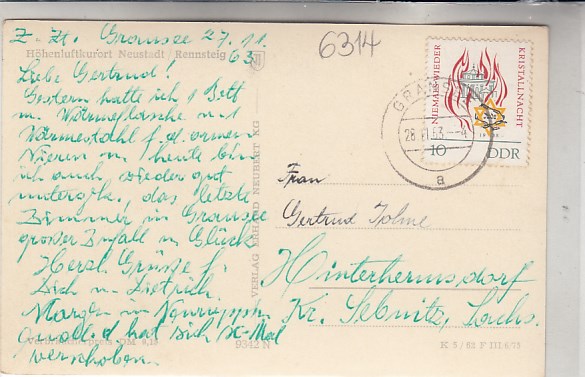 Z. Zt. Gransee 27.11.
63.
Höhenluftkurort Neustadt / Rennsteig
Liebe Gertrud!
Gestern hatte ich 1 Bett
m. Wärmflasche u. 1
f. d. armen
Nieren u. heute bin
ich auch wieder gut
das letzte
Zimmer in Gransee
großer Zufall u. Glück
Herzl. Grüße f.
Dich u. Dietrich.
Morgen in
hat sich
verschoben.
Verbraucherpreis DM 0,18
9342 N
VERLAG ERHARD NEUBERT KG
6314
NIEMALS WIEDER
KRISTALLNACHT
10 DDR
GRANSEE
28.11.63
a
Frau
Gertrud
Hinterhermsdorf
Kr. Sebnitz, Sachs.
K 5/63 F III 6/18